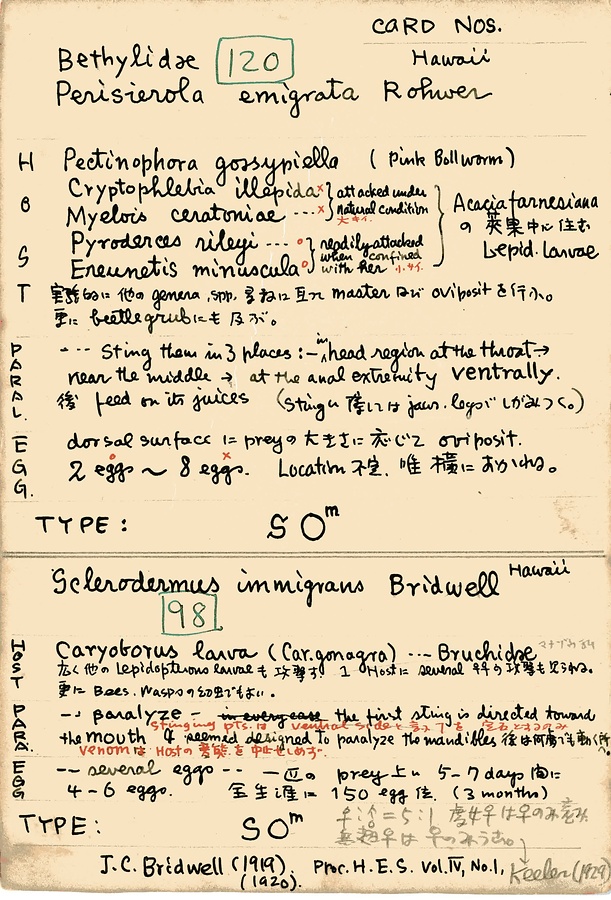 CARD NOS.
Bethylidae 120 Hawaii
Perisierola emigrata Rohwer
HOST
Pectinophora gossypiella ( Pink Bollworm)
Cryptophlebia illepida x
Myelois ceratoniae --- x
attacked under
natural condition
大キイ.
Pyroderces rileyi --- o
Ereunetis minuscula o
readily attacked
when confined
with her 小サイ.
Acacia farnesiana
の 莢果中に住む
Lepid. Larvae
実験的に他の genera, spp. に亙って master 及び oviposit を行ふ。
更に beetle grub にも及ぶ。
PARAL.
--- Sting them in 3 places :- in head region at the throat →
near the middle → at the anal extremity ventrally.
後 feed on its juices (Sting に際しては jaws. legs でしがみつく。)
EGG.
dorsal surface に prey の大きさに応じて oviposit.
2 eggs ~ 8 eggs. Location 不定. 唯横におかれる。
TYPE : SOm
Sclerodermus immigrans Bridwell Hawaii
98
HOST
Caryoborus larva (Car. gonagra) --- Bruchidae
広く他の Lepidopterous larvae も攻撃す 1 Host に several ♀♀の攻撃も見られる。
更に Bees. Wasps の幼虫でもよい。
PARA.
--- paralyze - in every case the first sting is directed toward
stinging pts. は ventral side と言ってを
the mouth & seemed designed to paralyze the mandibles 後は何處でも動く所。
venom は Host の を中止せしめず.
EGG
--- several eggs -- 一匹の prey 上に 5-7 days 間に
4-6 eggs. 全生涯に 150 egg 位. (3 months)
TYPE : SOm
♀:♂=5:1 處女♀は♂のみ産み
無翅♀は ♀のみうむ。
J.C. Bridwell (1919). Proc. H.E.S. Vol. IV, No.1, Keeler (1929)
(1920).